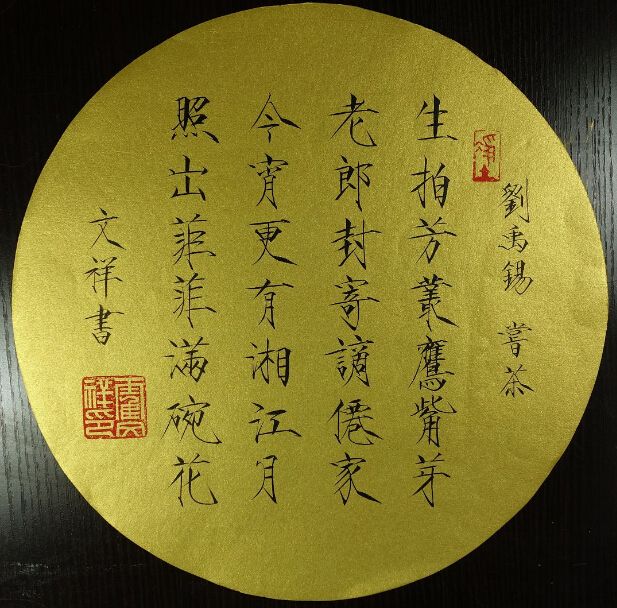 劉禹錫 嘗茶
生拍芳叢鷹觜芽
老郎封寄謫僊家
今宵更有湘江月
照出菲菲滿碗花
文祥書